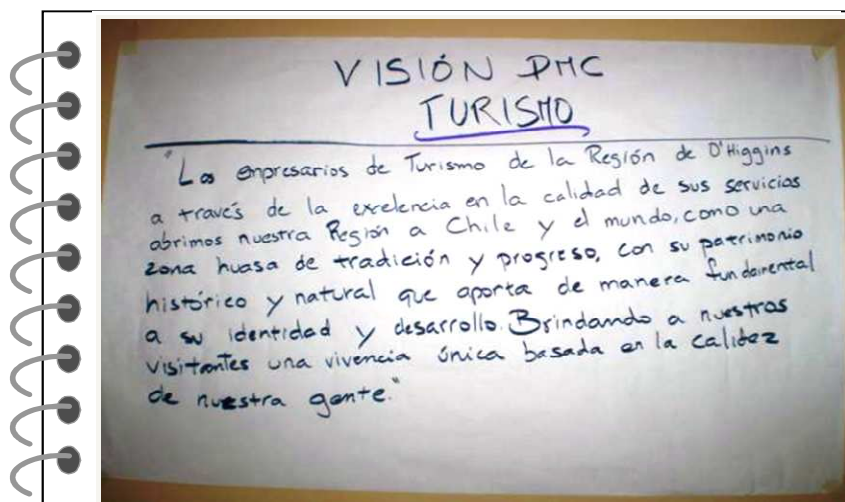 VISIÓN PMC
TURISMO
"Los empresarios de Turismo de la Región de O'Higgins
a través de la exelencia en la calidad de sus servicios
abrimos nuestra Región a Chile y el mundo, como una
zona huasa de tradición y progreso, con su patrimonio
histórico y natural que aporta de manera fundamental
a su identidad y desarrollo. Brindando a nuestros
visitantes una vivencia única basada en la calidez
de nuestra gente."